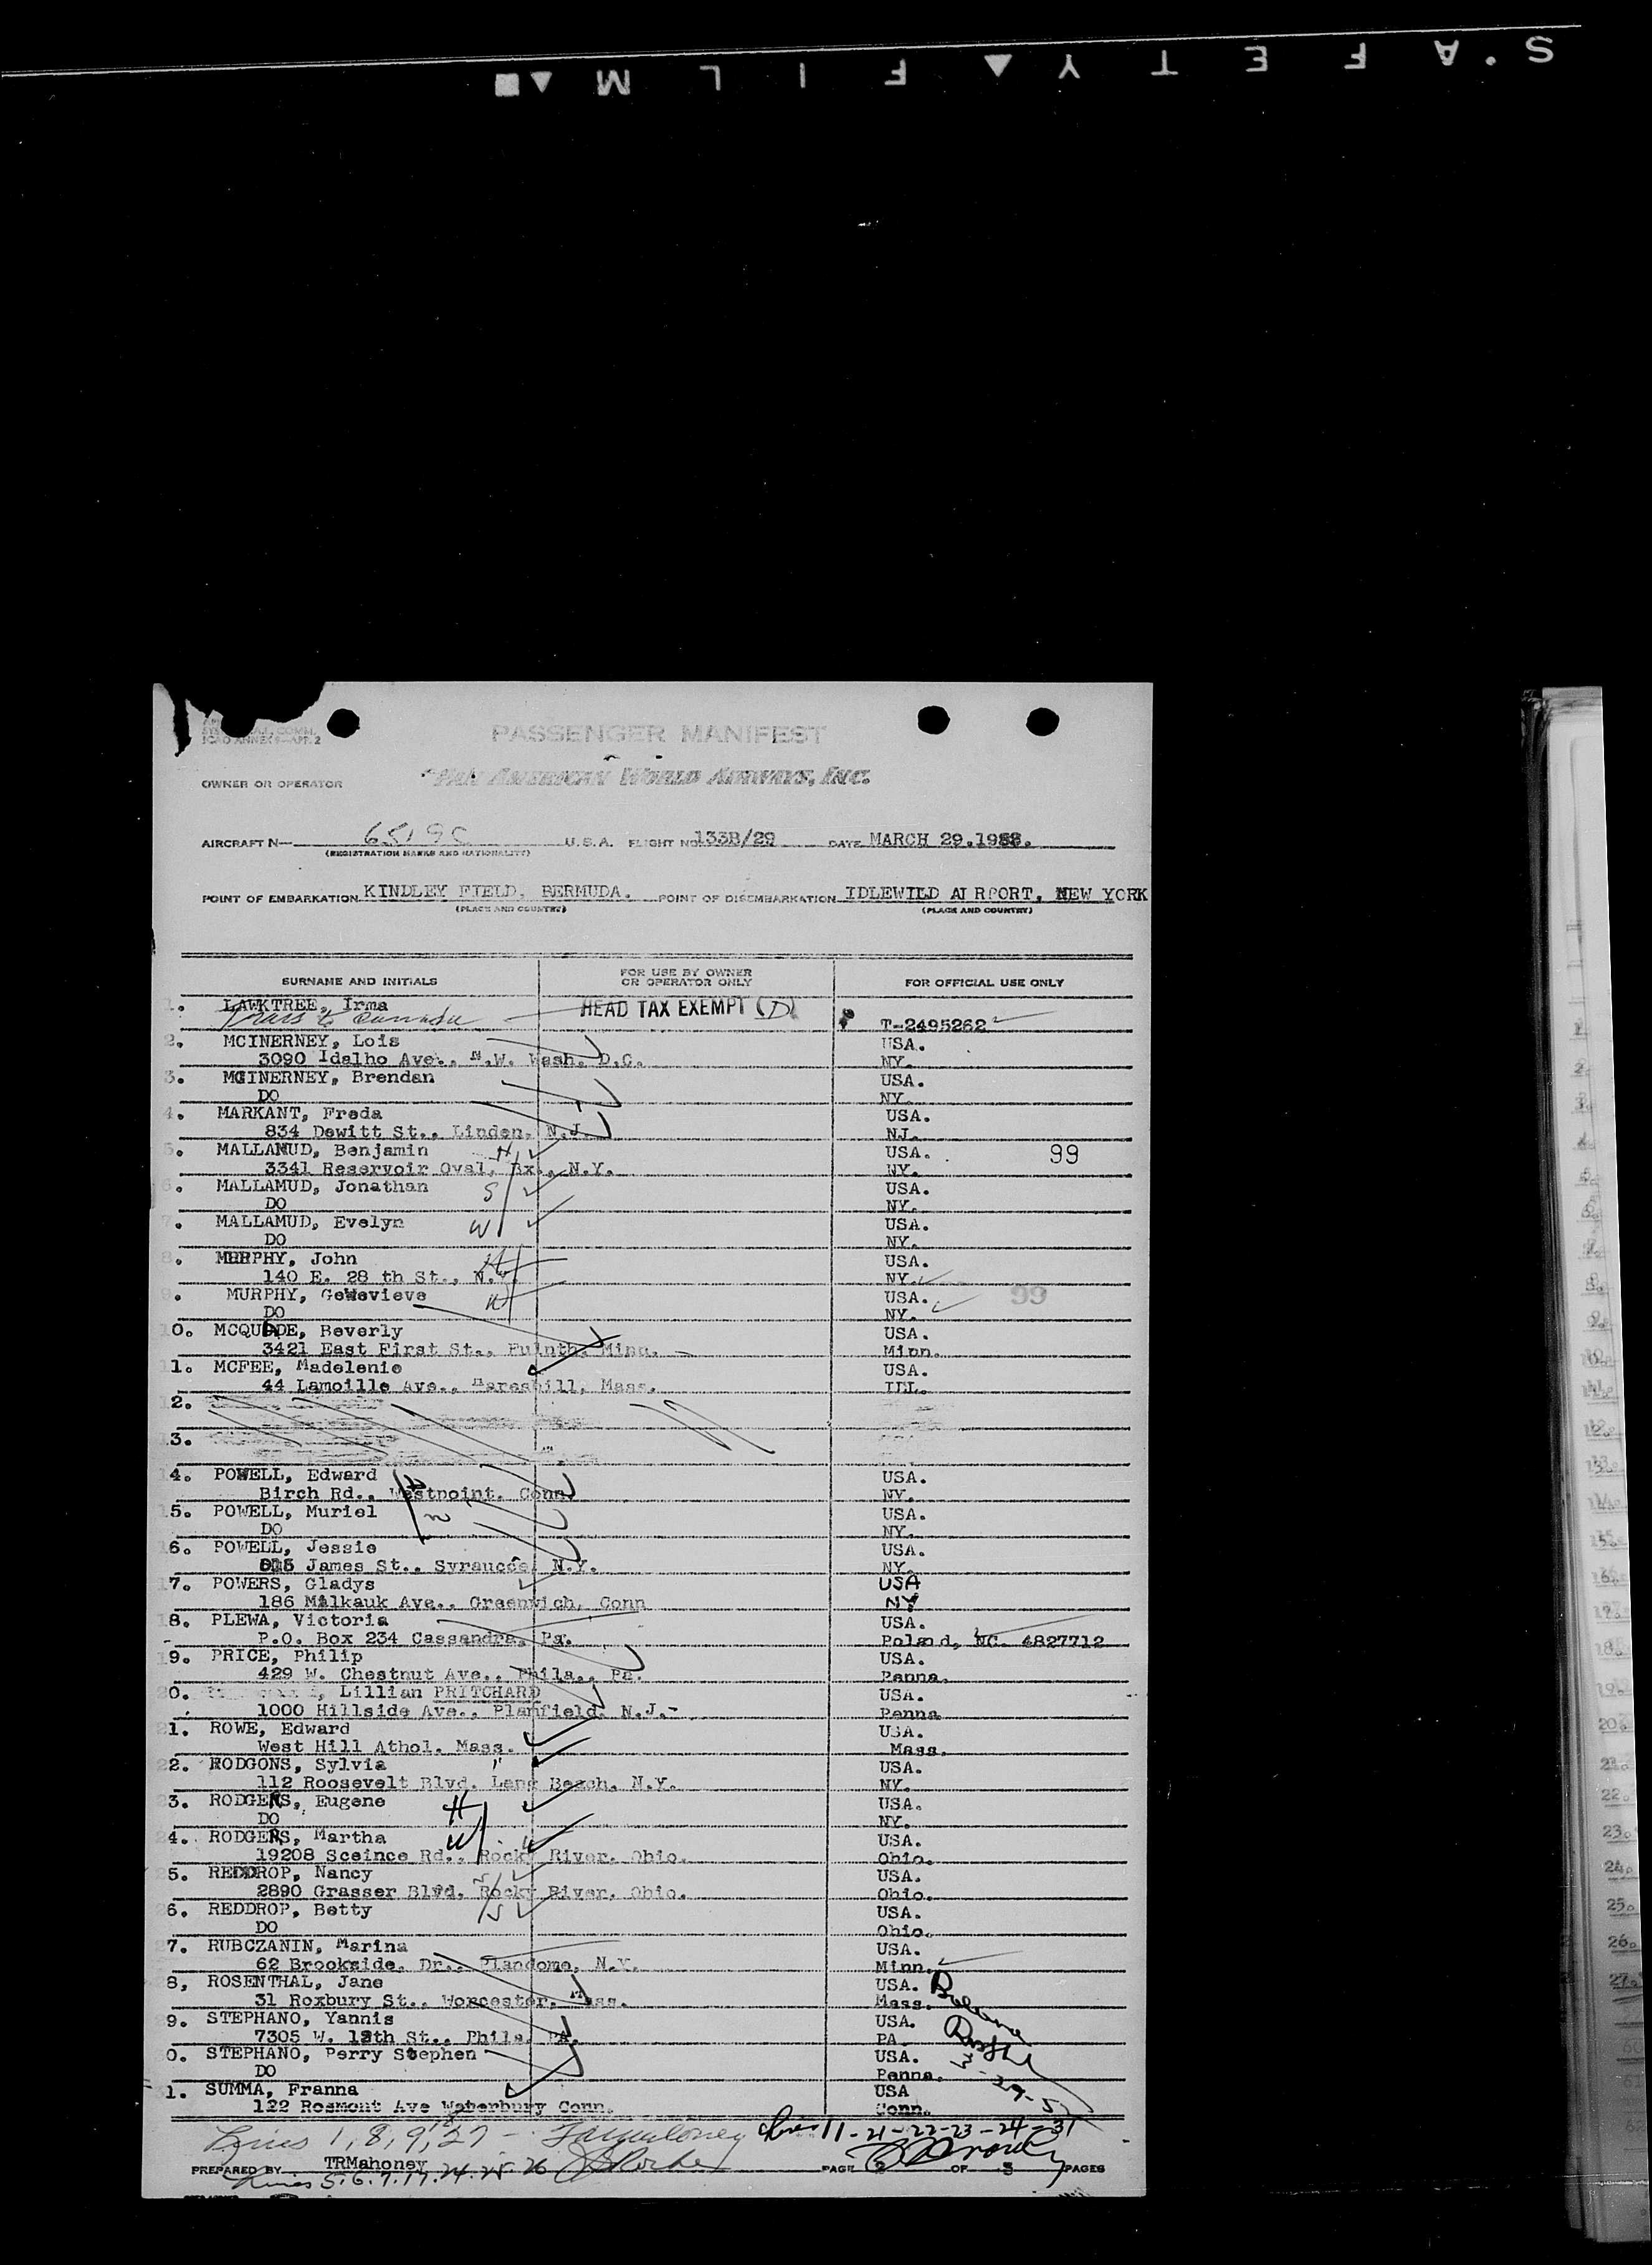 S.AFETY▲FILM▲■
ICAO ANNEX 9—APP. 2
PASSENGER MANIFEST
OWNER OR OPERATOR
PAN AMERICAN WORLD AIRWAYS, INC.
AIRCRAFT N— 6519C U.S.A. FLIGHT NO 133B/29 DATE MARCH 29.1952.
(REGISTRATION MARKS AND NATIONALITY)
POINT OF EMBARKATION KINDLEY FIELD, BERMUDA. POINT OF DISEMBARKATION IDLEWILD AIRPORT, NEW YORK
(PLACE AND COUNTRY) (PLACE AND COUNTRY)
SURNAME AND INITIALS FOR USE BY OWNER OR OPERATOR ONLY FOR OFFICIAL USE ONLY
1. LAWKTREE, Irma HEAD TAX EXEMPT (D)
Trans to Canada T-2495262
2. MCINERNEY, Lois USA.
3090 Idalho Ave., N.W. Wash. D.C. NY.
3. MCINERNEY, Brendan USA.
DO NY.
4. MARKANT, Freda USA.
834 Dewitt St., Linden, N.J. NJ.
5. MALLAMUD, Benjamin H USA. 99
3341 Reservoir Oval, Bx., N.Y. NY.
6. MALLAMUD, Jonathan S USA.
DO NY.
7. MALLAMUD, Evelyn W USA.
DO NY.
8. MURPHY, John H USA.
140 E. 28 th St., N.Y. NY.
9. MURPHY, Genevieve W USA. 99
DO NY.
10. MCQUADE, Beverly USA.
3421 East First St., Pulnth, Minn. Minn.
11. MCFEE, Madelenie USA.
44 Lamoille Ave., Hareshill, Mass. ILL.
12.
13.
14. POWELL, Edward H USA.
Birch Rd., Westpoint, Conn. NY.
15. POWELL, Muriel W USA.
DO NY.
16. POWELL, Jessie USA.
James St., Syraucce, N.Y. NY.
17. POWERS, Gladys USA
186 Milkauk Ave., Greenwich, Conn NY
18. PLEWA, Victoria USA.
P.O. Box 234 Cassandra, Pa. Poland, NC. 4827712
19. PRICE, Philip USA.
429 W. Chestnut Ave., Phila., Pa. Penna.
20. Lillian PRITCHARD USA.
1000 Hillside Ave., Planfield, N.J.- Penna
21. ROWE, Edward USA.
West Hill Athol, Mass. Mass.
22. RODGONS, Sylvia USA.
112 Roosevelt Blvd. Long Beach, N.Y. NY.
23. RODGERS, Eugene H USA.
DO NY.
24. RODGERS, Martha W USA.
19208 Sceince Rd., Rocky River, Ohio. Ohio.
25. REDDROP, Nancy S USA.
2890 Grasser Blvd. Rocky River, Ohio. Ohio.
26. REDDROP, Betty S USA.
DO Ohio.
27. RUBCZANIN, Marina USA.
62 Brookside, Dr., Plandome, N.Y. Minn.
8, ROSENTHAL, Jane USA.
31 Roxbury St., Worcester, Mass. Mass.
9. STEPHANO, Yannis USA.
7305 W. 12th St., Phila, PA. PA.
0. STEPHANO, Perry Stephen USA.
DO Penna.
1. SUMMA, Franna USA
122 Rosmont Ave Waterbury Conn. Conn.
Lines 1,8,9,27 - Lines 11-21-22-23-24-31
PREPARED BY TRMahoney PAGE 2 OF 3 PAGES
Lines 5.6.7.17.24.25.26